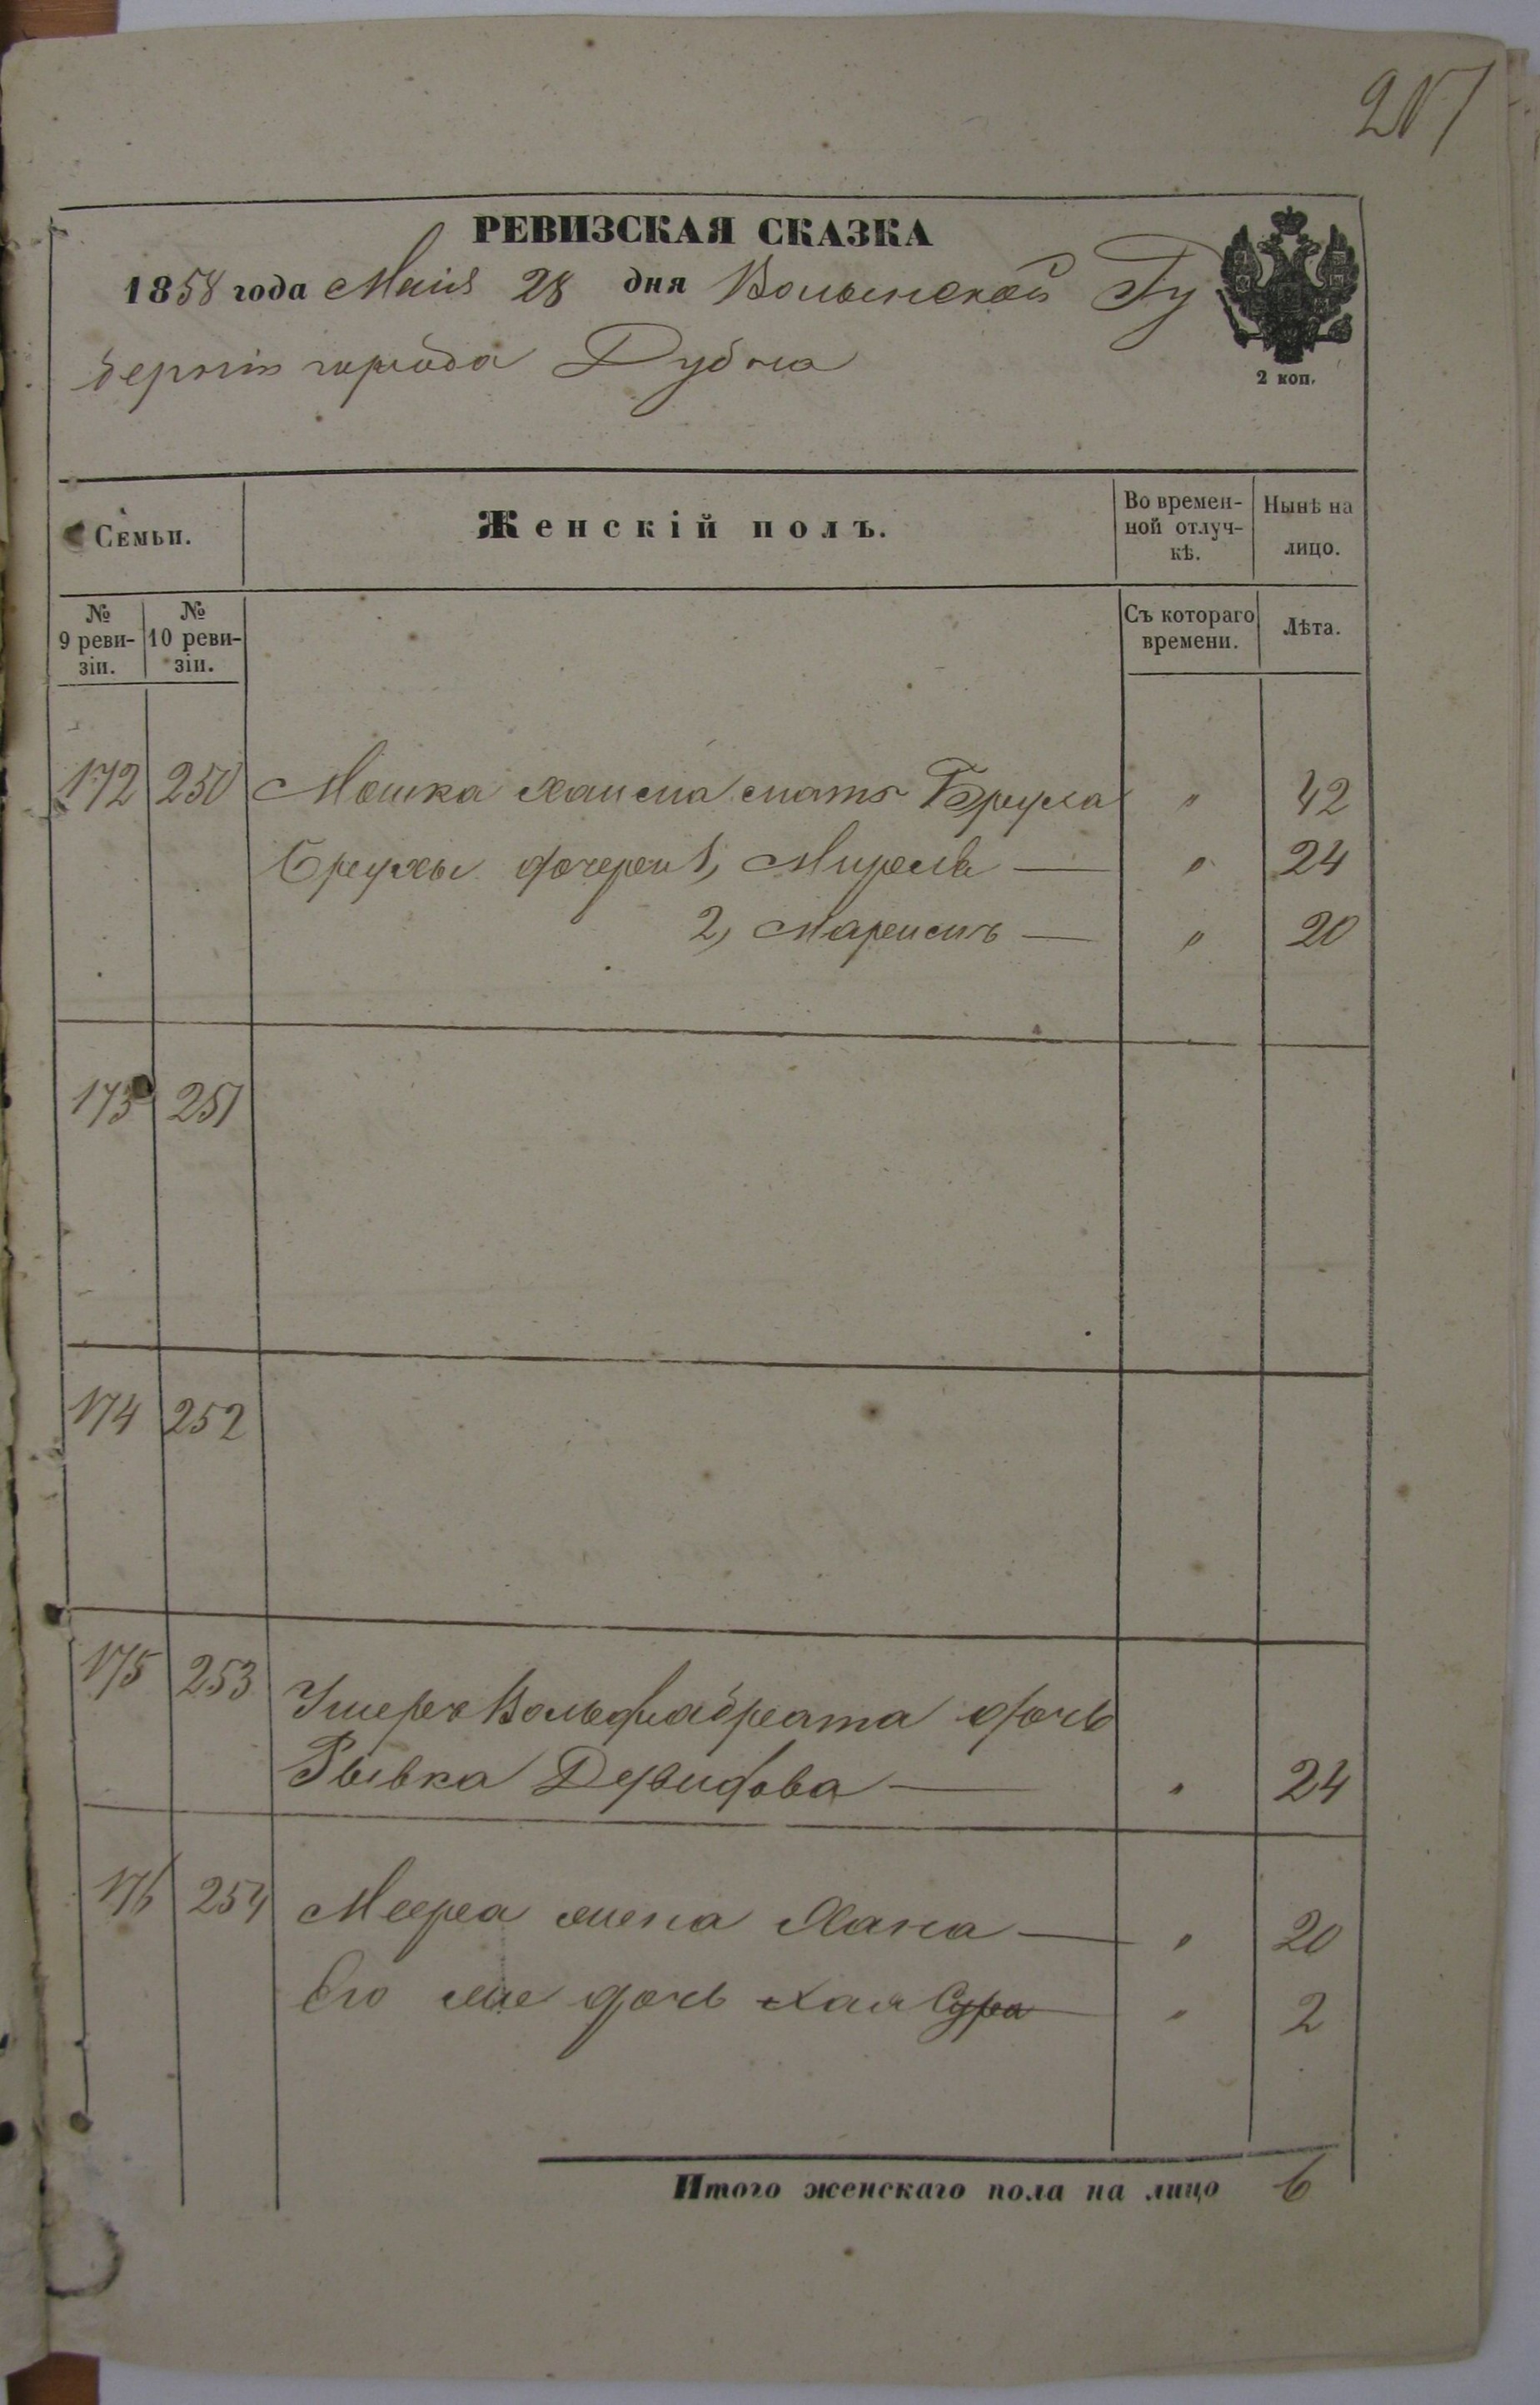 РЕВИЗСКАЯ СКАЗКА
1858 года Маія 28 дня Волынской Гу
берніи города Дубна
2 коп.
Семьи.
Женскій полъ.
Во времен-
ной отлуч-
кѣ.
Нынѣ на
лицо.
№
9 реви-
зіи.
№
10 реви-
зіи.
Съ котораго
времени.
Лѣта.
172 250 Мошка Хаима мать Бруха " 42
Брухи дочери 1, Мирель — " 24
2, — " 20
173 251
174 252
175 253
Умер. Вольфа брата дочь
Рывка Девидова — " 24
176 254 Меера жена Хана — " 20
Его же дочь Хая Сура " 2
Итого женскаго пола на лицо 6